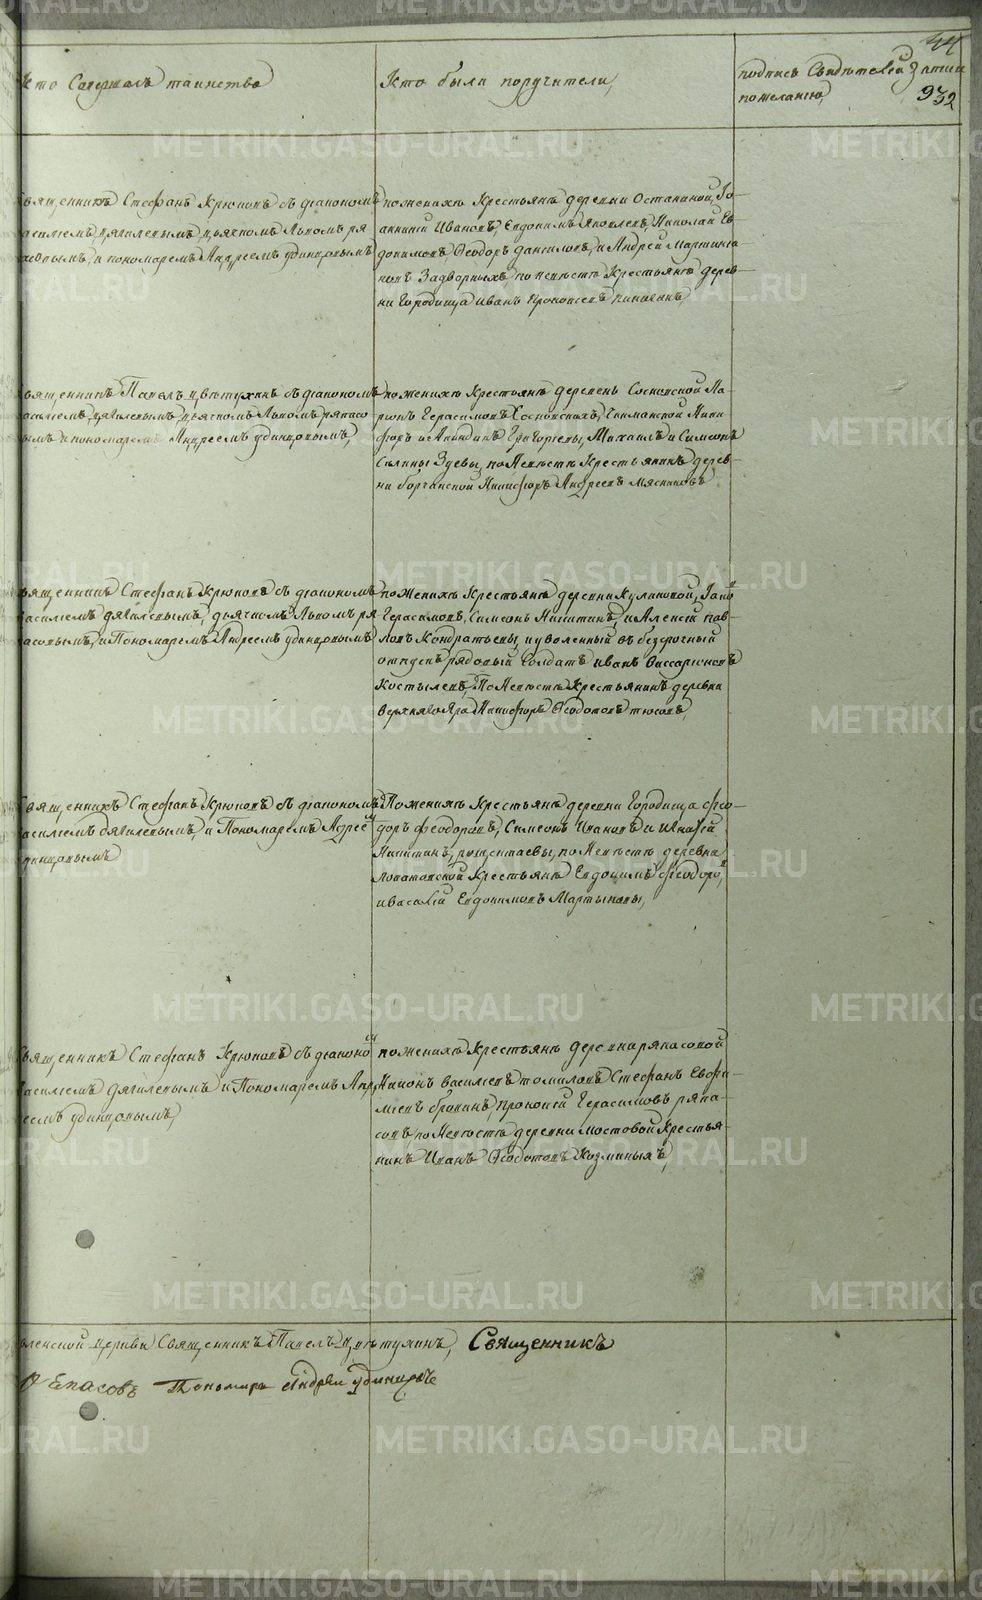 Кто Совершалъ таинство
Кто были поручители,
подпись Свидѣтелей Записи
по желанію,
44
932
Священникъ Стефанъ Крюковъ съ діакономъ
Василіемъ Дягилевымъ, дьячкомъ Львомъ Ря
пасовымъ, и пономаремъ Андреемъ Удинцовымъ
по женихѣ Крестьяне деревни Останиной, Іо-
анникій Ивановъ, Евдокимъ Яковлевъ, Николай Ев-
докимовъ, Ѳеодоръ Даниловъ, и Андрей Мартиніа-
новъ Задворныхъ, по невѣстѣ Крестьянъ дерев-
ни Городища Иванъ Прокопьевъ
Священникъ Павелъ Цвѣтухинъ съ діакономъ
Василіемъ Дягилевымъ, дьячкомъ Львомъ Ряпасо
вымъ и пономаремъ Андреемъ Удинцовымъ,
по женихѣ Крестьяне деревень Сосновской Ла-
ріонъ Герасимовъ Сосновскихъ, Ники-
форъ и Акиндинъ Григорьевы, Михаилъ и Симеонъ
Силины по Невѣстѣ Крестьянинъ дерев-
ни Никифоръ Андреевъ Мясниковъ
Священникъ Стефанъ Крюковъ съ діакономъ
Василіемъ Дягилевымъ, дьячкомъ Львомъ Ря
пасовымъ, и Пономаремъ Андреемъ Удинцовымъ
по Женихѣ Крестьяне деревни Куликовой,
Герасимовъ, Симеонъ Никитинъ, и Алексій Пав-
ловъ Кондратьевы, и уволенный въ безсрочный
отпускъ рядовый Солдатъ Иванъ Виссаріоновъ
Костылевъ, По Невѣстѣ Крестьянинъ деревни
Верхняго Яра Никифоръ Ѳеодотовъ
Священникъ Стефанъ Крюковъ съ діакономъ
Василіемъ Дягилевымъ, и Пономаремъ Андрее
Удинцовымъ
По женихѣ Крестьяне деревни Городища Фео-
доръ Феодоровъ, Симеонъ Ивановъ и
Никитинъ, по Невѣстѣ деревни
Лопатовской Крестьяне Евдокимъ Феодоро
и Василій Евдокимовъ Мартыновы,
Священникъ Стефанъ Крюковъ съ діаконом
Василіемъ Дягилевымъ и Пономаремъ Анд
реемъ Удинцовымъ,
по женихѣ Крестьяне деревни Ряпасовой
Василіевъ Томиловъ Стефанъ Евфи-
міевъ Прокопій Герасимовъ Ряпа-
совъ, по Невѣстѣ деревни Мостовой Крестья-
нинъ Иванъ Ѳеодотовъ Козминыхъ,
Церкви Священникъ Павелъ Цвѣтухинъ, Священникъ
Пономарь Андрей Удинцовъ
METRIKI.GASO-URAL.RU